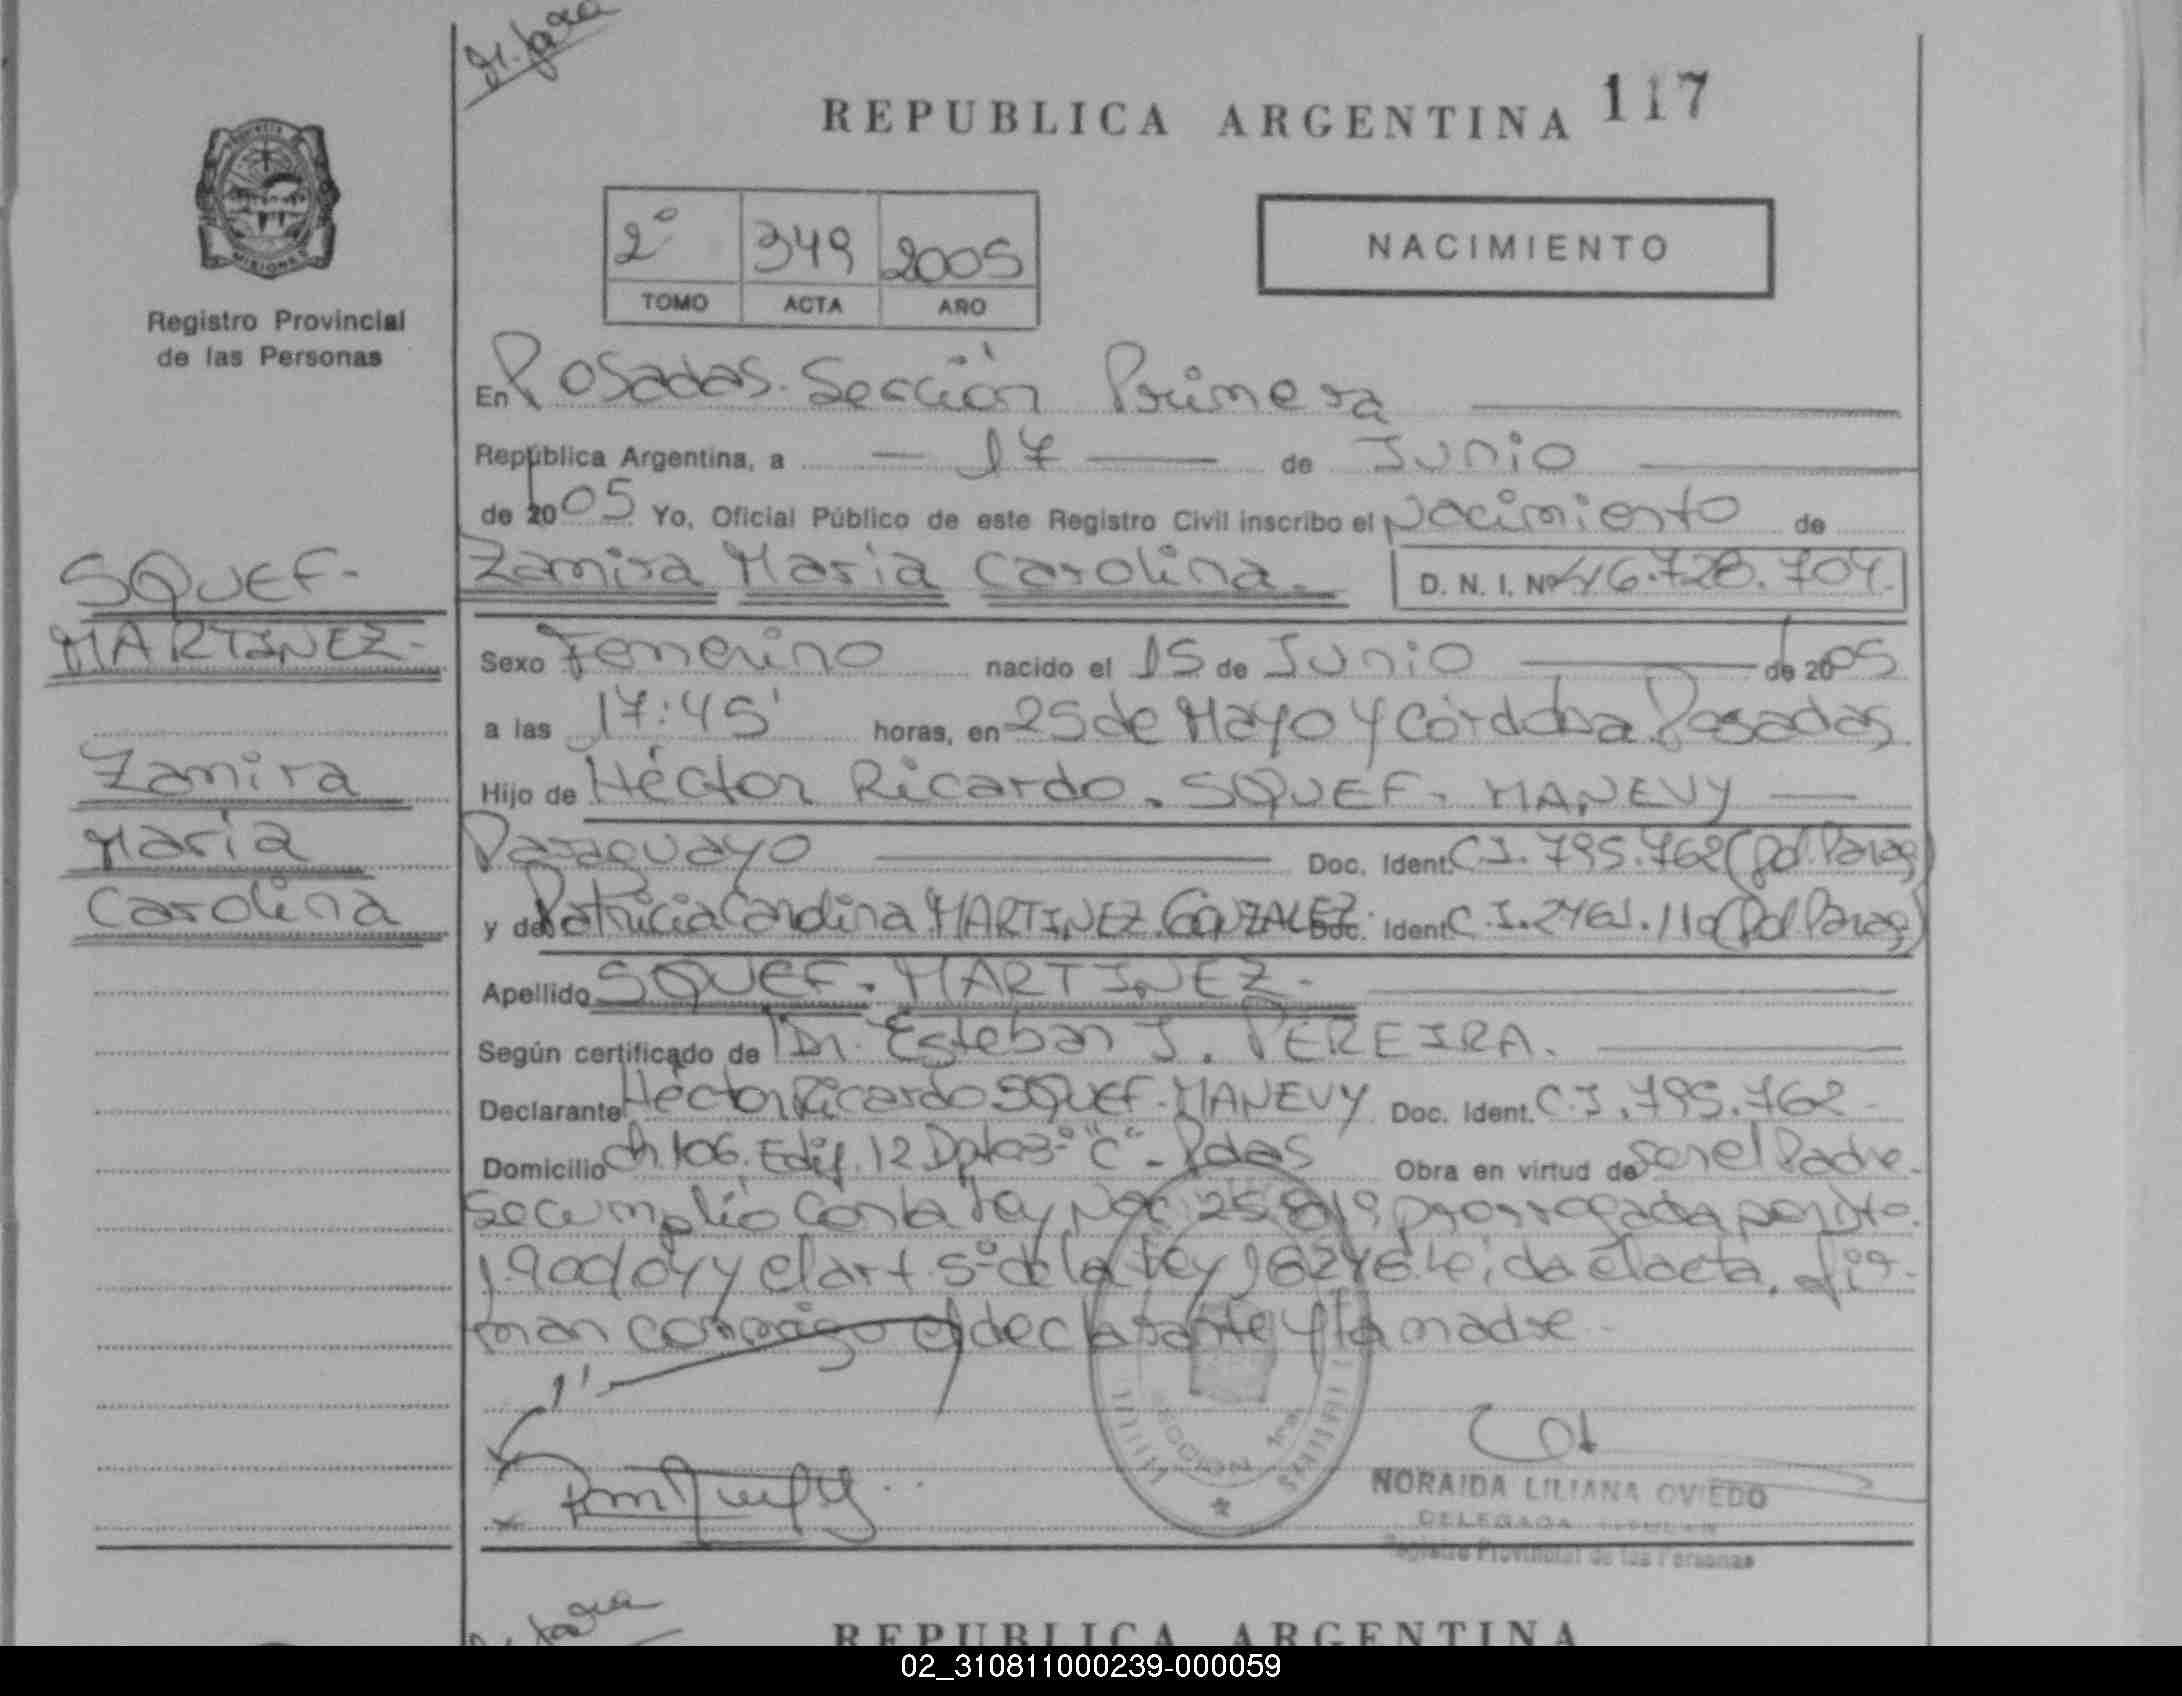 REPUBLICA ARGENTINA 117
MISIONES
Registro Provincial
de las Personas
2º 349 2005
TOMO ACTA AÑO
NACIMIENTO
En Posadas. Sección Primera
República Argentina, a 17 de Junio
de 2005 Yo, Oficial Público de este Registro Civil inscribo el Nacimiento de
Zamira Maria Carolina. D. N. I. Nº 46.728.704.
SQUEF-
MARTINEZ-
Zamira
Maria
Carolina
Sexo Femenino nacido el 15 de Junio de 2005
a las 17:45' horas, en 25 de Mayo y Córdoba Posadas
Hijo de Héctor Ricardo. SQUEF. MANEVY
Paraguayo Doc. Ident. C.I. 795.762 (Pol. Parag)
y de Patricia Carolina MARTINEZ GONZALEZ Doc. Ident. C.I. 2461.110 (Pol. Parag)
Apellido SQUEF. MARTINEZ-
Según certificado de Dr. Esteban J. PEREIRA.
Declarante Héctor Ricardo SQUEF. MANEVY Doc. Ident. C.I. 795.762-
Domicilio Ch. 106. Edif. 12 Dpto 3º "C" - Pdas Obra en virtud de ser el Padre-
Se cumplió con la Ley Nac. 25.819 prorrogada por Dto.
1900/04 y el art. 5º de la Ley 18248. Leida el acta, fir-
man conmigo el declarante y la madre-
SECCION 1ra
NORAIDA LILIANA OVIEDO
DELEGADA TITULAR
Registro Provincial de las Personas
REPUBLICA ARGENTINA
02_310811000239-000059